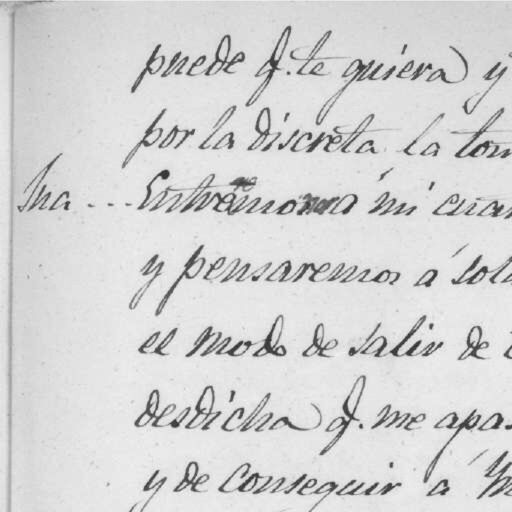 puede q. te quiera y
por la discreta la tom
Ina ... Entremonos á mi cuar
y pensaremos á sola
el modo de salir de
desdicha q. me apas
y de conseguir á